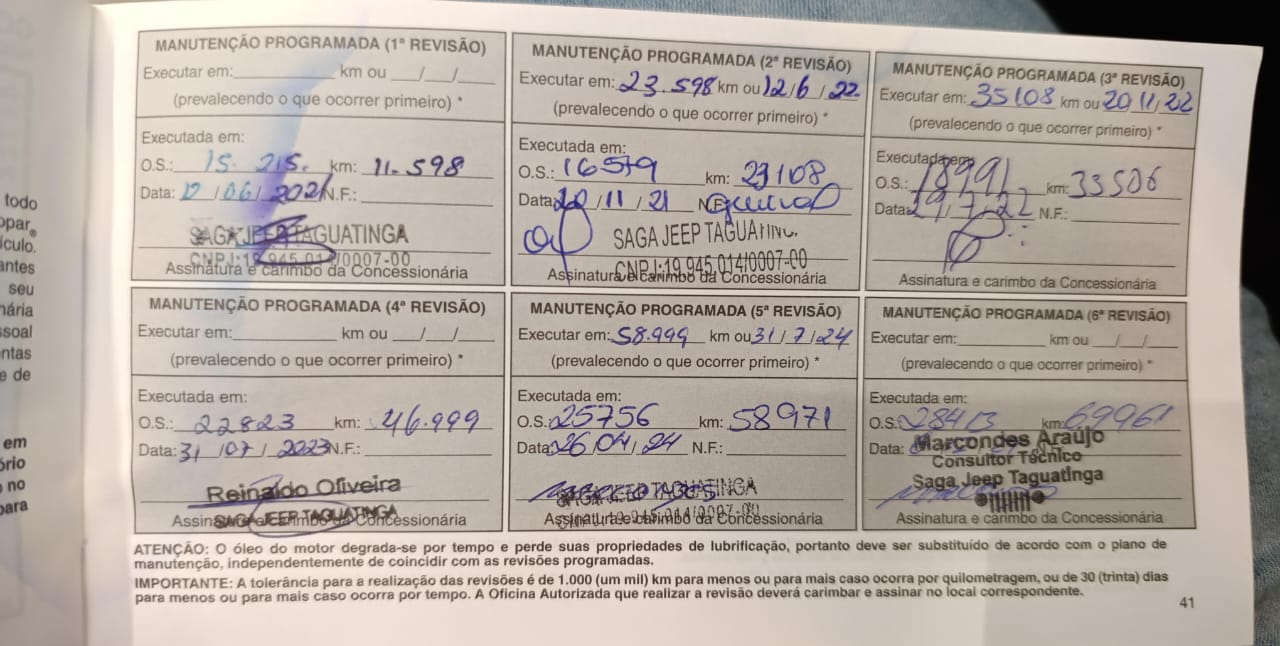 todo
opar®
ículo.
antes
seu
nária
ssoal
ntas
e de
em
ório
o no
para
MANUTENÇÃO PROGRAMADA (1ª REVISÃO)
Executar em: km ou / /
(prevalecendo o que ocorrer primeiro) *
Executada em:
O.S.: 15.215. km: 11.598
Data: 12/06/2021 N.F.:
SAGA JEEP TAGUATINGA
CNPJ:19.945.014/0007-00
Assinatura e carimbo da Concessionária
MANUTENÇÃO PROGRAMADA (2ª REVISÃO)
Executar em: 23.598 km ou 12/6/22
(prevalecendo o que ocorrer primeiro) *
Executada em:
O.S.: 16579 km: 23108
Data: 20/11/21 N.F.:
SAGA JEEP TAGUATINGA
CNPJ:19.945.014/0007-00
Assinatura e carimbo da Concessionária
MANUTENÇÃO PROGRAMADA (3ª REVISÃO)
Executar em: 35108 km ou 20/11/22
(prevalecendo o que ocorrer primeiro) *
Executada em:
O.S.: 18991 km: 33506
Data: 29/7/22 N.F.:
Assinatura e carimbo da Concessionária
MANUTENÇÃO PROGRAMADA (4ª REVISÃO)
Executar em: km ou / /
(prevalecendo o que ocorrer primeiro) *
Executada em:
O.S.: 22823 km: 46.999
Data: 31/07/2023 N.F.:
Reinaldo Oliveira
SAGA JEEP TAGUATINGA
Assinatura e carimbo da Concessionária
MANUTENÇÃO PROGRAMADA (5ª REVISÃO)
Executar em: 58.999 km ou 31/7/24
(prevalecendo o que ocorrer primeiro) *
Executada em:
O.S.: 25756 km: 58971
Data: 26/04/24 N.F.:
SAGA JEEP TAGUATINGA
Assinatura e carimbo da Concessionária
MANUTENÇÃO PROGRAMADA (6ª REVISÃO)
Executar em: km ou / /
(prevalecendo o que ocorrer primeiro) *
Executada em:
O.S.: 28413 km: 69961
Data:
Marcondes Araújo
Consultor Técnico
Saga Jeep Taguatinga
Assinatura e carimbo da Concessionária
ATENÇÃO: O óleo do motor degrada-se por tempo e perde suas propriedades de lubrificação, portanto deve ser substituído de acordo com o plano de
manutenção, independentemente de coincidir com as revisões programadas.
IMPORTANTE: A tolerância para a realização das revisões é de 1.000 (um mil) km para menos ou para mais caso ocorra por quilometragem, ou de 30 (trinta) dias
para menos ou para mais caso ocorra por tempo. A Oficina Autorizada que realizar a revisão deverá carimbar e assinar no local correspondente.
41